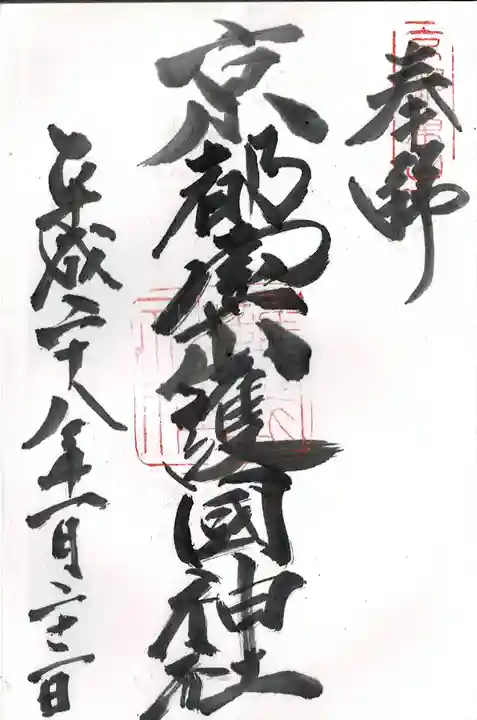 奉拝
京都霊山護國神社
平成二十八年十一月二十二日